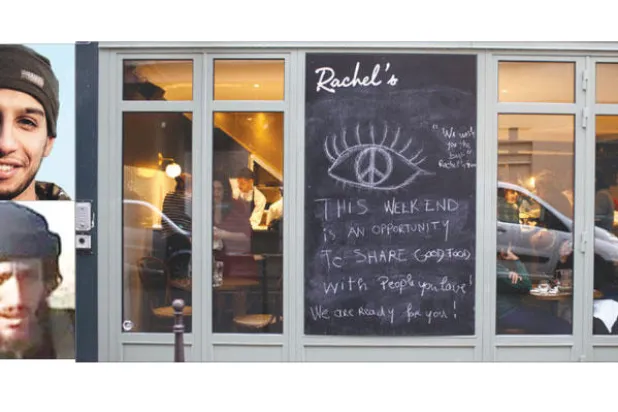 Rachel's
"We wish
you for the
THIS WEEK-END
is AN OPPORTUNITY
To SHARE GOOD FOOD
With People you love!
We are Ready for you!